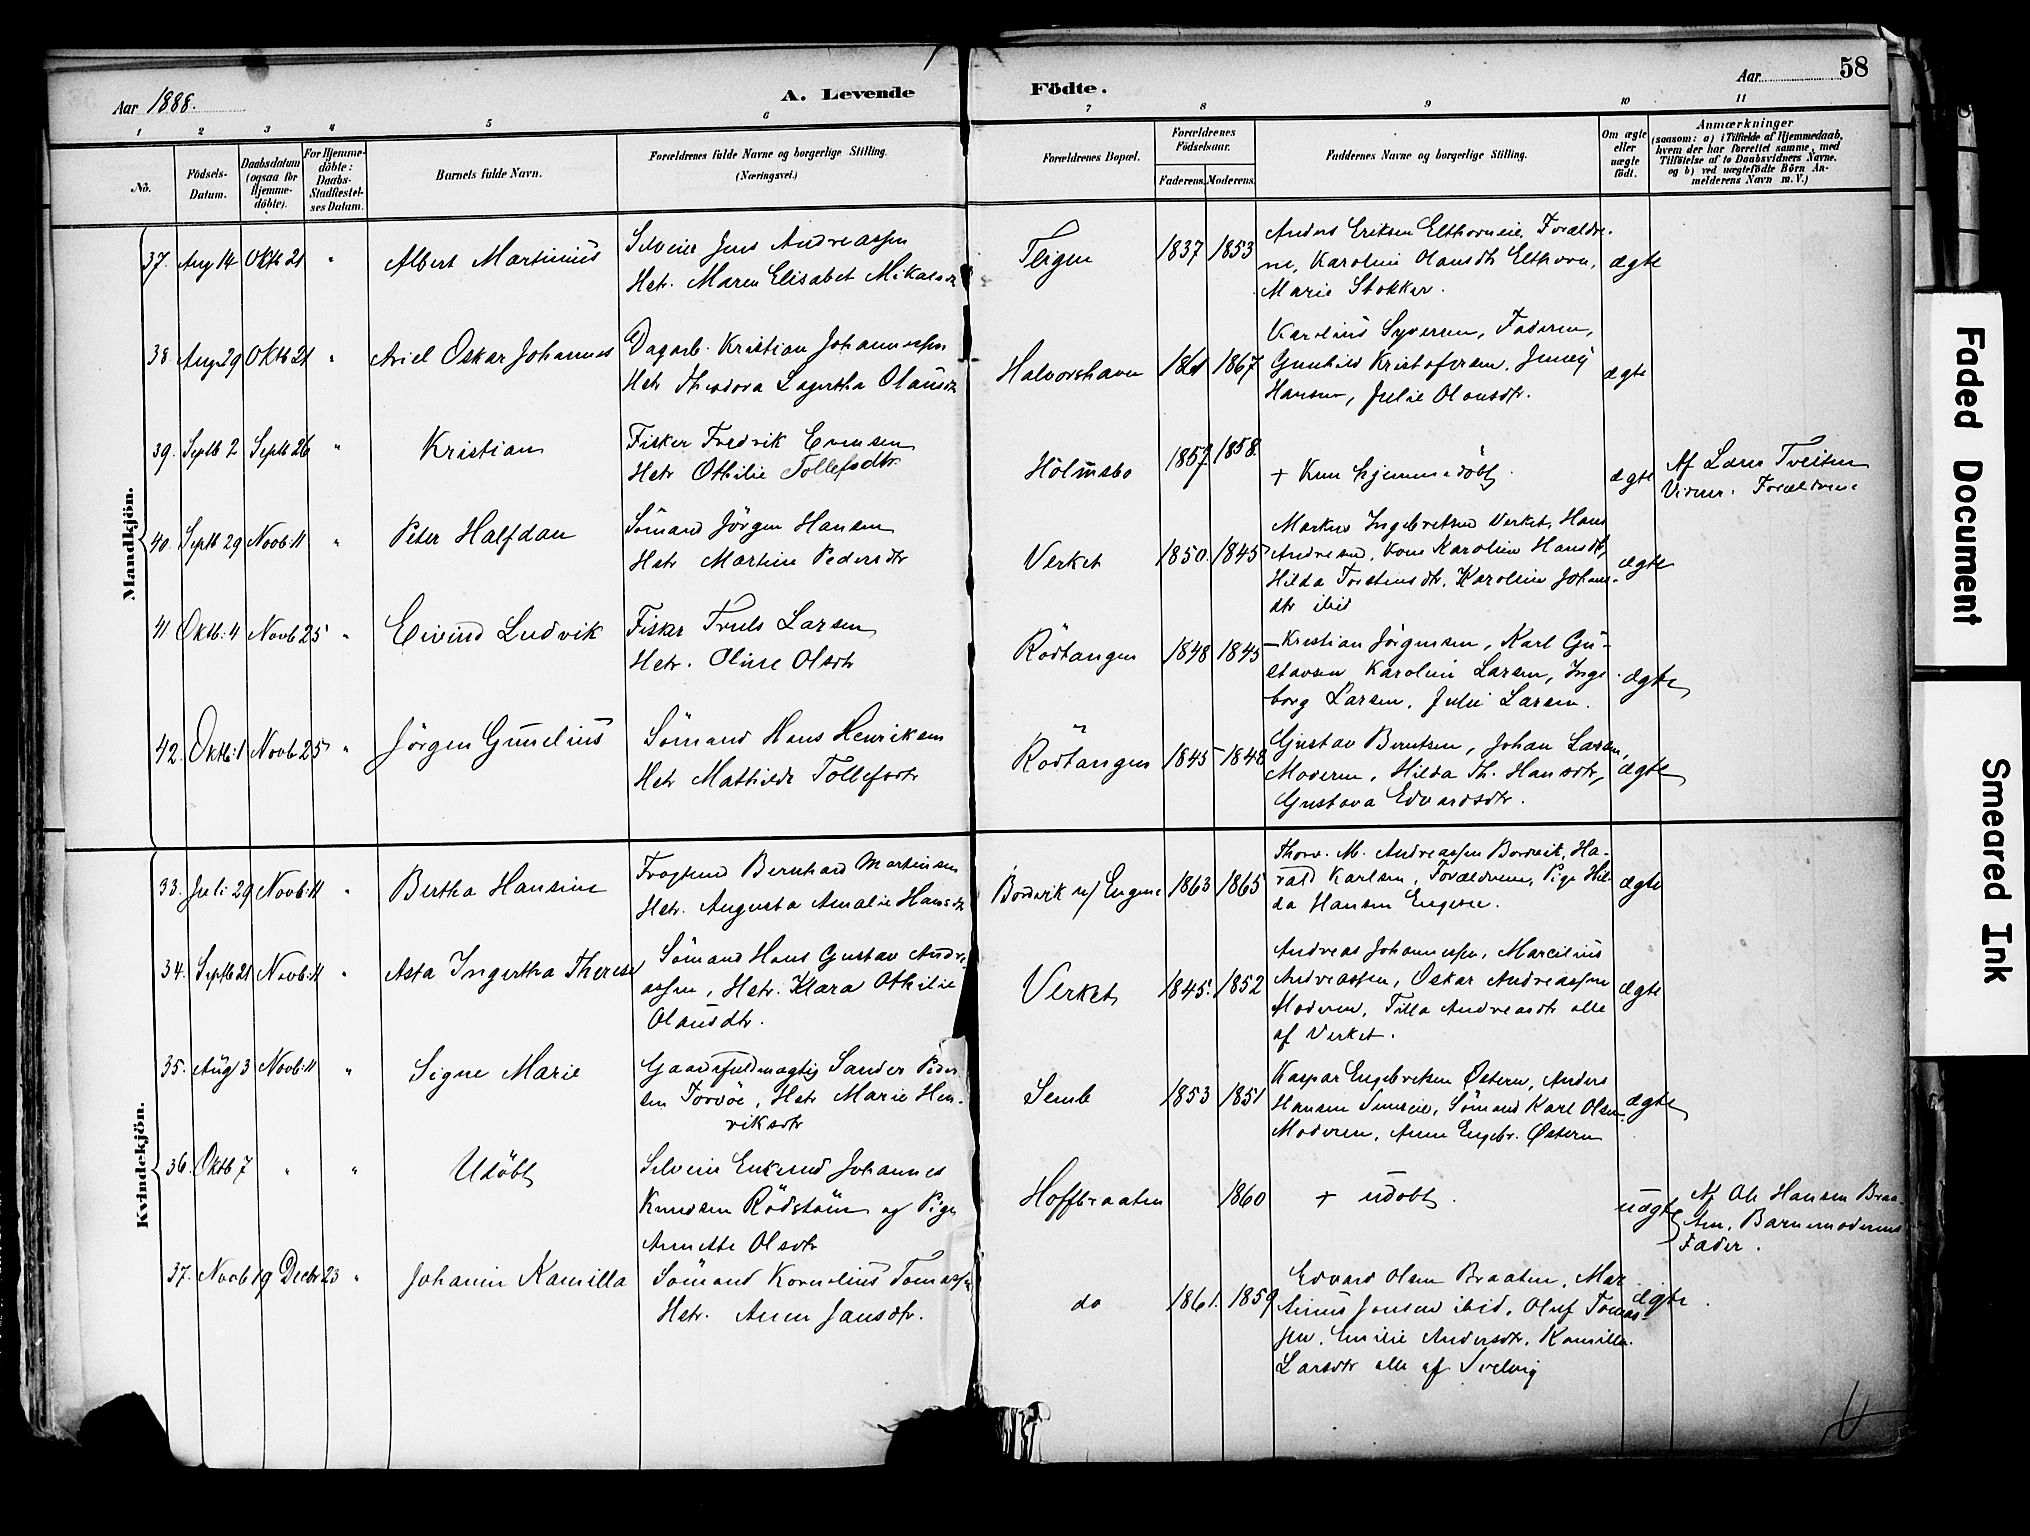 58
Aar 1888.
A. Levende Födte.
Aar
1 2 3 4 5 6 7 8 9 10 11
No.
Födsels-Datum.
Daabsdatum (ogsaa for Hjemme-döbte).
For Hjemme-döbte: Daabs-Stadfæstel-ses Datum.
Barnets fulde Navn.
Forældrenes fulde Navne og borgerlige Stilling. (Næringsvei.)
Forældrenes Bopæl.
Forældrenes Födselsaar.
Faderens. Moderens.
Faddernes Navne og borgerlige Stilling.
Om ægte eller uægte födt.
Anmærkninger
(saasom: a) i Tilfælde af Hjemmedaab,
hvem der har forrettet samme, med
Tilföielse af to Daabsvidners Navne.
og b) ved uægtefödte Börn An-
melderens Navn m. V.)
Mandkjön.
37. Aug 14 Oktb 21 " Albert Martinius
Selveier Jens Andreassen
Hstr. Maren Elisabet Mikalsdtr
Teigen 1837 1853
Anders Eriksen Elthorneie, Forældre-
ne, Karoline Olausdtr Elthorn,
Marie Stokker.
ægte
38. Aug 29 Oktb 21 " Ariel Oskar Johannes
Dagarb. Kristian Johannessen
Hstr Theodora Lagertha Olausdtr
Halvorshavn 1861 1867
Karolius Syversen, Faderen,
Gunhild Kristofersen, Jenny
Hansen, Julie Olausdtr.
ægte
39. Septb 2 Septb 26 " Kristian
Fisker Fredrik Evensen
Hstr Othilie Tollefsdtr.
Holmsbo 1857 1858
+ Kun hjemmedöbt.
ægte
Af Lars Tveiten
Vidner: Forældrene
40. Septb 29 Novb. 11 " Peter Halfdan
Sömand Jörgen Hansen
Hstr Martine Pedersdtr
Verket 1850. 1845
Markus Ingebretsen Verket, Hans
Andresen, Kone Karoline Hansdtr,
Hilda Torstensdtr, Karoline Johans-
dtr ibid
ægte
41 Oktb. 4 Novb 25 " Eivind Ludvik
Fisker Truls Larsen
Hstr. Oline Olsdtr
Rödtangen 1848 1845
Kristian Jörgensen, Karl Gu-
stavsen Karoline Larsen, Inge-
borg Larsen, Julie Larsen.
ægte
42. Oktb. 1 Novb 25 " Jörgen Gunelius
Sömand Hans Henriksen
Hstr Mathilde Tollefsdtr
Rödtangen 1845 1848
Gustav Berntsen, Johan Larsen,
Moderen, Hilda Th. Hansdtr,
Gustava Edvardsdtr.
ægte
Kvindekjön.
33. Juli 29 Novb. 11 " Bertha Hansine
Bernhard Martinsen
Hstr. Augusta Amalie Hansdtr
Bordvik u/ Engene 1863 1865
Thorv. M. Andreassen Bordvik, Ha-
rald Karlsen, Forældrene, Pige Hil-
da Hansen Engene.
ægte
34. Septb 21 Novb. 11 " Asta Ingertha Therese
Sömand Hans Gustav Andre-
assen, Hstr. Klara Othilie
Olausdtr.
Verket 1845. 1852
Andreas Johannessen, Marcilius
Andreassen, Oskar Andreassen
Moderen, Tilla Andreasdtr alle
af Verket.
ægte
35. Aug 3 Novb. 11 " Signe Marie
Gaardsfuldmægtig Sander Peder-
sen Torvöe, Hstr Marie Hen-
riksdtr
Semb 1853 1851
Kaspar Engebretsen Östern, Anders
Hansen, Sömand Karl Olsen
Moderen, Anne Engebr. Östern
ægte
36. Oktb 7 " " Udöbt
Selveier Enkemd Johannes
Knudsen Rödstöen og Pige
Annette Olsdtr
Hoffbraaten 1860
+ udöbt
uægte
Af Ole Hansen Braa-
ten, Barnemoderens
Fader.
37. Novb 19 Decbr 23 " Johanne Kamilla
Sömand Kornelius Tomassen
Hstr. Anne Jansdtr.
do 1861. 1859
Edvard Olsen Braaten, Mar-
tinius Jensen ibid, Oluf Tomas-
sen, Emilie Andersdtr, Kamilla
Larsdtr alle af Svelvig
ægte.
Faded Document
Smeared Ink